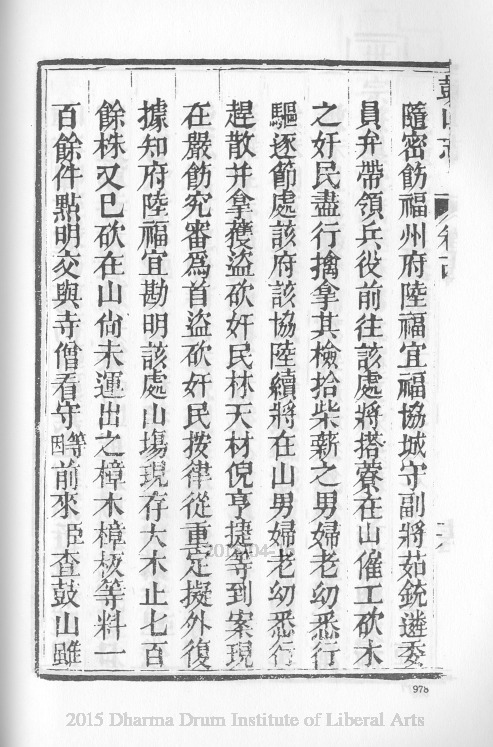 鼓山志
卷百
隨密飭福州府陸福宜福協城守副將茹銃遴委
員弁帶領兵役前往該處將搭藔在山僱工砍木
之奸民盡行擒拿其檢拾柴薪之男婦老幼悉行
驅逐節處該府該協陸續將在山男婦老幼悉行
趕散并拿獲盜砍奸民林天材倪亨捷等到案現
在嚴飭究審爲首盜砍奸民按律從重定擬外復
據知府陸福宜勘明該處山塲現存大木止七百
餘株又已砍在山尙未運出之樟木樟板等料一
百餘件點明交與寺僧看守等因前來臣查鼓山雖
978
2015 Dharma Drum Institute of Liberal Arts